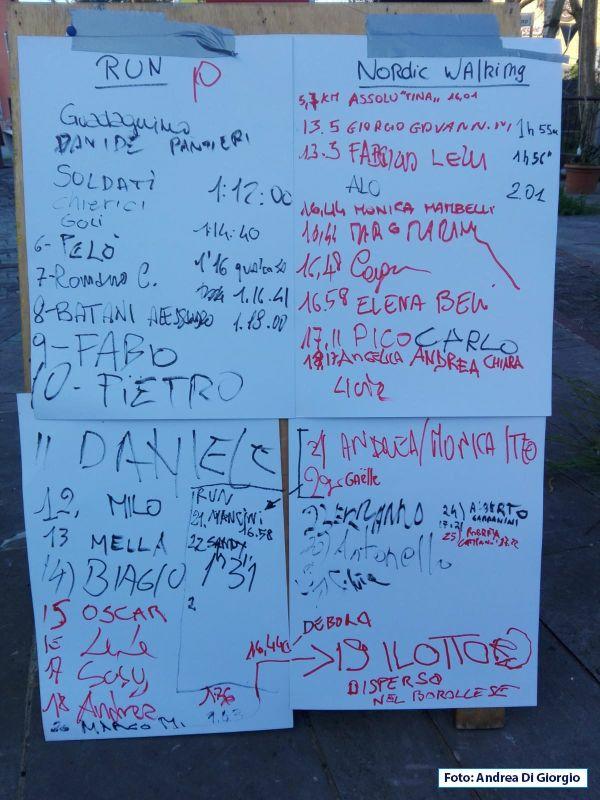 RUN
Guadagnino
DAVIDE PANGIERI
SOLDATI 1:12:00
CHIERICI
GOLI 1:14:40
6- PELÒ 1'16
7- Romano C. 1.16.41
8- BATANI ALESSANDRO 1.18.00
9- FABIO
10- PIETRO
Nordic Walking
5,7 KM ASSOLU "TINA" 16,01
13.5 GIORGIO GOVANNINI 1h55
13.5 FABRIZIO LELLI 1h56
ALO 2.01
16,44 MONICA MAMBELLI
16,48
16.58 ELENA BELLI
17,11 PICO CARLO
ANGELICA ANDREA CHIARA
11 DANIELE
12, MILO
13 MELLA
14) BIAGIO 1'31
15 OSCAR
16 LeLe
17 Susy
18 Andrea
20 MARCO M.
RUN
21. MANCINI 16.58
22 SANDY
2
21 ANDREA/MONICA/TEO
22 Gaëlle
24) ALBERTO
25)
Antonello
Silvia
DEBORA
16,44
19 ILOTTO
DISPERSO
NEL BOROLLESE
Foto: Andrea Di Giorgio